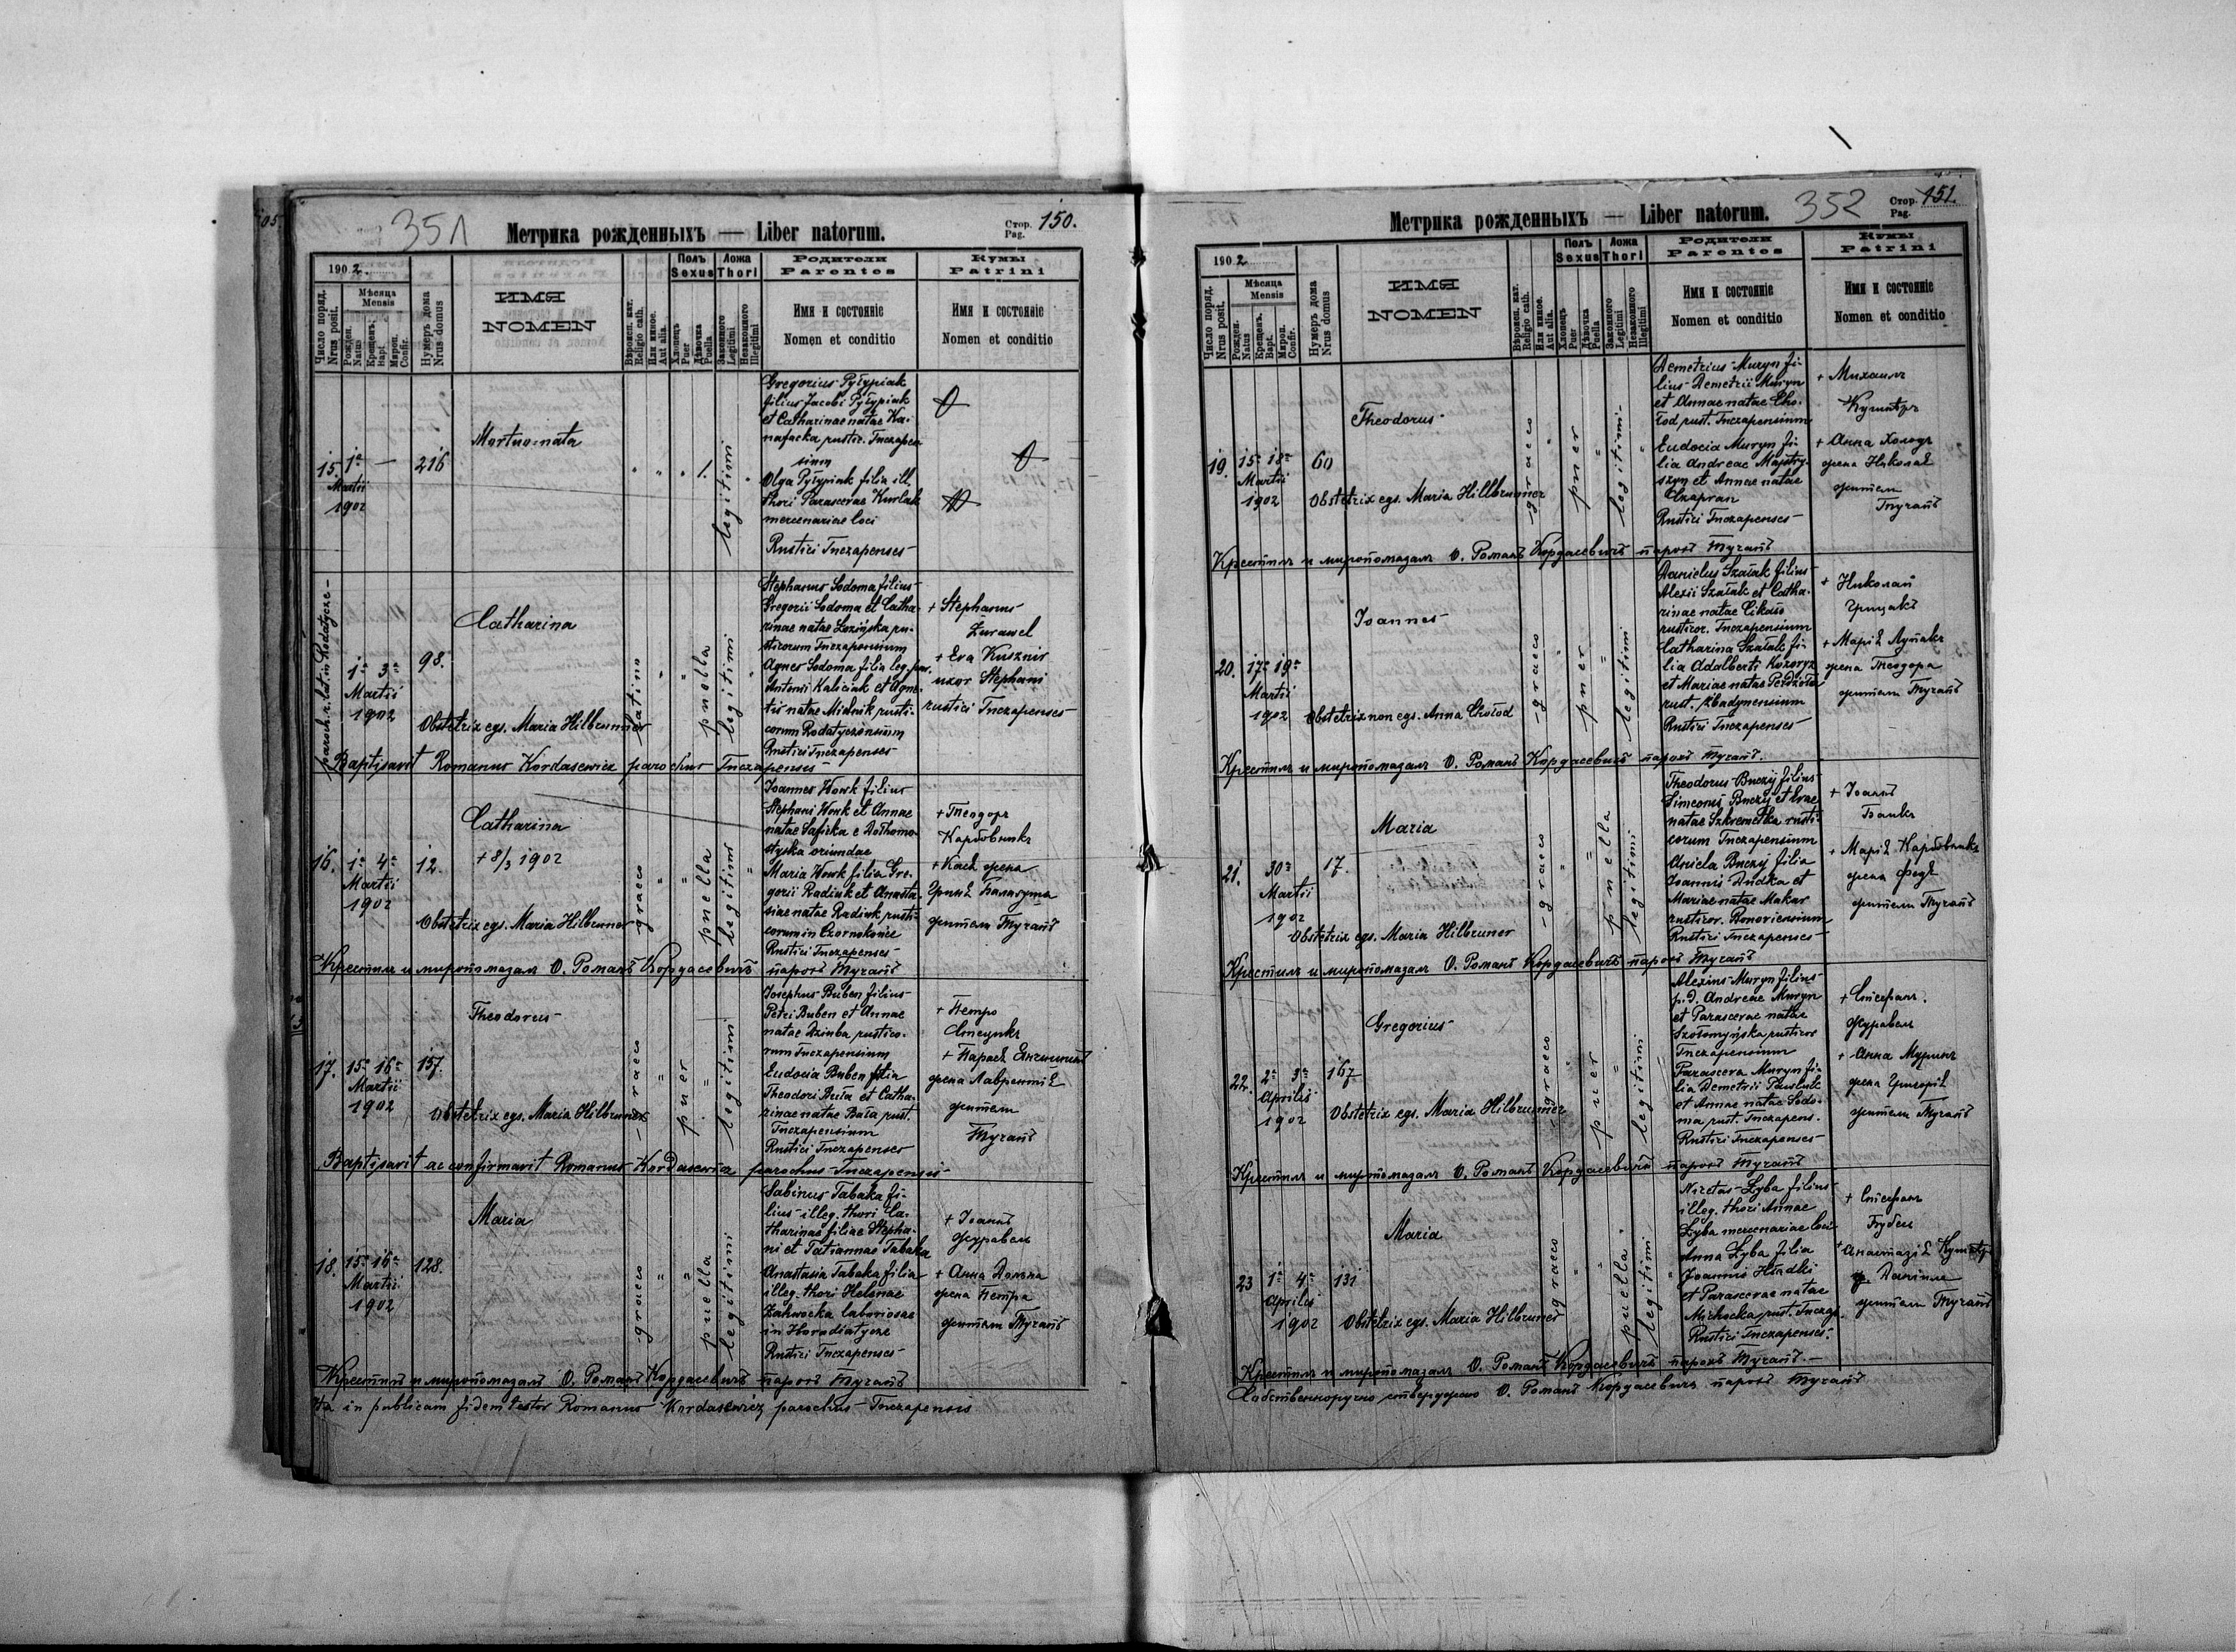 351
Метрика рожденныхъ — Liber natorum.
Стор. Pag. 150.
1902.
Число поряд. Nrus posit.
Мѣсяца Mensis
Рожден. Natus
Крещенъ. Bapt.
Миром. Confir.
Нумеръ дома Nrus domus
ИМЯ
NOMEN
Вѣроисп. кат. Religio cath.
Или инное. Aut alia.
Полъ Sexus
Хлопецъ Puer
Дѣвочка Puella
Ложа Thori
Законного Legitimi
Незаконного Illegitimi
Родители
Parentes
Имя и состояніе
Nomen et conditio
Кумы
Patrini
Имя и состояніе
Nomen et conditio
15. 1a — 216
Martii
1902
Mortuo-nata
legitimi
Gregorius Pyłypiak
filius Jacobi Pyłypiak
et Catharinae natae
rustic. Tuczapen
sium
Olga Pyłypiak filia ill.
thori Parascevae Kurlak
mercenariae loci
Rustici Tuczapenses
paroch. r. lat. in Rodatycze
1a 3a 98.
Martii
1902
Catharina
Obstetrix egs. Maria Hilbrunner
latino
puella
legitimi
Stephanus Sodoma filius
Gregorii Sodoma et Catha-
rinae natae Łozińska ru-
sticorum Tuczapensium
Agnes Sodoma filia leg.
Antonii Kaliciak et Agne-
tis natae Mielnik rusti-
corum Rodatyczensium
Rustici Tuczapenses
+ Stephanus
Żurawel
+ Eva Kusznir
uxor Stephani
rustici Tuczapenses
Baptisavit Romanus Kordasewicz parochus Tuczapensis
16. 1a 4a 12.
Martii
1902
Catharina
+ 8/3 1902
Obstetrix egs. Maria Hilbruner
graeco
puella
legitimi
Joannes Wowk filius
Stephani Wowk et Annae
natae e Dołhomo-
styska oriundae
Maria Wowk filia Gre-
gorii Radiuk et Anasta-
siae natae Radiuk rusti-
corum in Czornokońce
Rustici Tuczapenses
+ Теодоръ
Карбовникъ
+ Кася жена
жители Тучапъ
Крестилъ и миропомазалъ О. Романъ Кордасевичъ парохъ Тучапъ
17. 15a 16a 157.
Martii
1902
Theodorus
Obstetrix egs. Maria Hilbruner
graeco
puer
legitimi
Josephus Buben filius
Petri Buben et Annae
natae Dziuba rustico-
rum Tuczapensium
Eudocia Buben filia
Theodori Buła et Catha-
rinae natae Bała rust.
Tuczapensium
Rustici Tuczapenses
+ Петро
Стецикъ
+ Параск
жена Лаврентія
жители
Тучапъ
Baptisavit ac confirmavit Romanus Kordasewicz parochus Tuczapensis
18. 15a 16a 128.
Martii
1902
Maria
graeco
puella
legitimi
Sabinus Tabaka fi-
lius illeg. thori Ca-
tharinae filiae Stepha-
ni et Tatiannae Tabaka
Anastasia Tabaka filia
illeg. thori Helenae
Zahwocka laboriosae
in Horodiatycze
Rustici Tuczapenses
+ Іоаннъ
Журавель
+ Анна
жена Петра
жители Тучапъ
Крестилъ и миропомазалъ О. Романъ Кордасевичъ парохъ Тучапъ
Ita in publicam fidem testor Romanus Kordasiewicz parochus Tuczapensis
352
Метрика рожденныхъ — Liber natorum.
Стор. Pag. 151.
1902
Число поряд. Nrus posit.
Мѣсяца Mensis
Рожден. Natus
Крещенъ. Bapt.
Миром. Confir.
Нумеръ дома Nrus domus
ИМЯ
NOMEN
Вѣроисп. кат. Religio cath.
Или инное. Aut alia.
Полъ Sexus
Хлопецъ Puer
Дѣвочка Puella
Ложа Thori
Законного Legitimi
Незаконного Illegitimi
Родители
Parentes
Имя и состояніе
Nomen et conditio
Кумы
Patrini
Имя и состояніе
Nomen et conditio
19. 15a 18a 60
Martii
1902
Theodorus
Obstetrix egs. Maria Hillbrunner
graeco
puer
legitimi
Demetrius Muryn fi-
lius Demetrii Muryn
et Annae natae Cho-
łod, rust. Tuczapensium
Eudocia Muryn fi-
lia Andreae Majstry-
szyn et Annae natae
Czapran
Rustici Tuczapenses
+ Михаилъ
Кушнѣръ
+ Анна Холодъ
жена Николая
жители
Тучапъ
Крестилъ и миропомазалъ О. Романъ Кордасевичъ парохъ Тучапъ
20. 17a 19a
Martii
1902
Joannes
Obstetrix non egs. Anna Chołod
graeco
puer
legitimi
Danielus Szałak filius
Alexii Szałak et Catha-
rinae natae Cikało
rusticor. Tuczapensium
Catharina Szałak fi-
lia Adalberti Kozoryz
et Mariae natae
rust. Zbadynensium
Rustici Tuczapenses
+ Николай
Грицакъ
+ Марія Лупакъ
жена Теодора
жители Тучапъ
Крестилъ и миропомазалъ О. Романъ Кордасевичъ парохъ Тучапъ.
21. 30a 17.
Martii
1902
Maria
Obstetrix egs. Maria Hilbruner
graeco
puella
legitimi
Theodorus Buczij filius
Simeonis Buczij et Evae
natae Szkremetka rusti-
corum Tuczapensium
Aniela Buczij filia
Joannis Dudka et
Mariae natae Makar
rusticor. Bonoviensium
Rustici Tuczapenses
+ Іоаннъ
+ Марія Карбовникъ
жена
жители Тучапъ
Крестилъ и миропомазалъ О. Романъ Кордасевичъ парохъ Тучапъ
22. 2a 3a 167
Aprilis
1902
Gregorius
Obstetrix egs. Maria Hilbrunner
graeco
puer
legitimi
Alexius Muryn filius
p. d. Andreae Muryn
et Parascevae natae
Szołomyńska rusticor
Tuczapensium
Parasceva Muryn fi-
lia Demetrii Pawluk
et Annae natae Sodo-
ma rust. Tuczapens.
Rustici Tuczapenses
+ Стефанъ
Журавель
+ Анна Муринъ
жена Григорія
жители Тучапъ
Крестилъ и миропомазалъ О. Романъ Кордасевичъ парохъ Тучапъ
23 1a 4a 131
Aprilis
1902
Maria
Obstetrix egs. Maria Hilbruner
graeco
puella
legitimi
Nicetas Zyba filius
illeg. thori Annae
Zyba mercenariae loci
Anna Zyba filia
Joannis Hładki
et Parascevae natae
Michocka rust. Tuczap.
Rustici Tuczapenses
+ Стефанъ
Бубенъ
+ Анастазія Кушнѣръ
ж. Даніила
жители Тучапъ
Крестилъ и миропомазалъ О. Романъ Кордасевичъ парохъ Тучапъ.
Собственноручно стверджаю О. Романъ Кордасевичъ парохъ Тучапъ